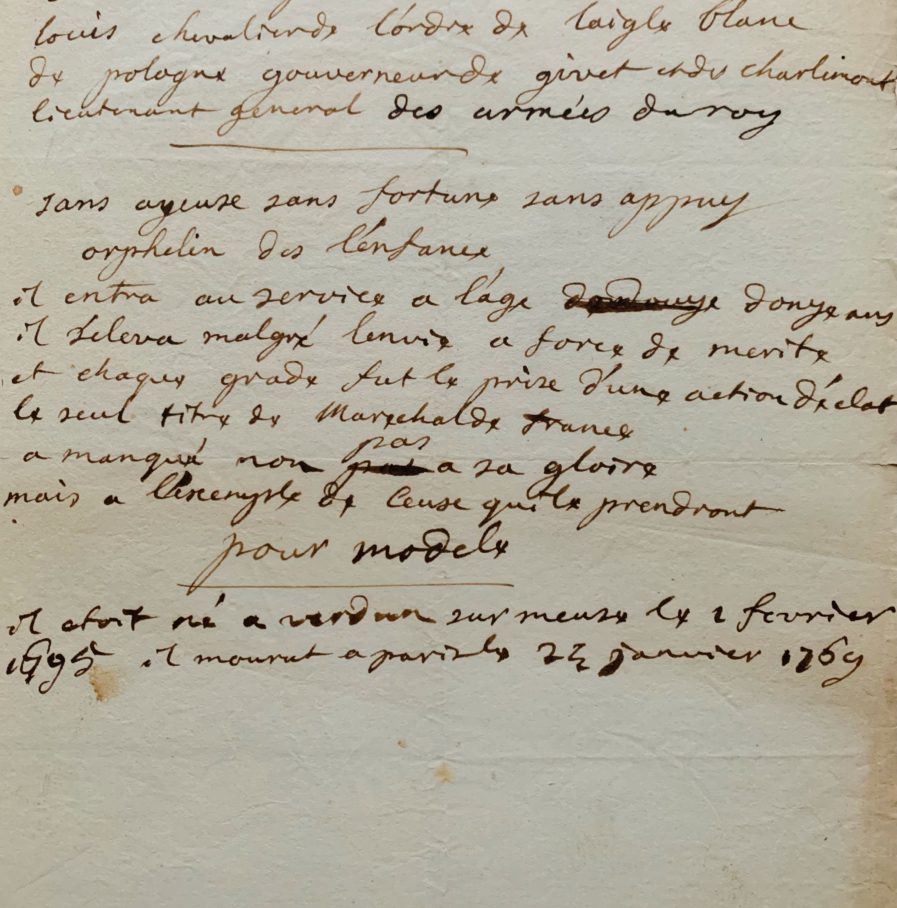 louis chevalier de l'ordre de laigle blanc
de pologne gouverneur de givet et de charlimont
lieutenant general des armées du roy
sans ayeuse sans fortune sans appuy
orphelin des l'enfance
il entra au service a l'age donze ans
il s'eleva malgré lenvie a force de merite
et chaque grade fut le prize d'une action d'éclat
le seul titre de Marechal de france
a manqué non pas a sa gloire
mais a l'exemple de ceuse qui le prendront
pour modele
il etoit né a verdun sur meuse le 2 fevrier
1695 il mourut a paris le 25 janvier 1769